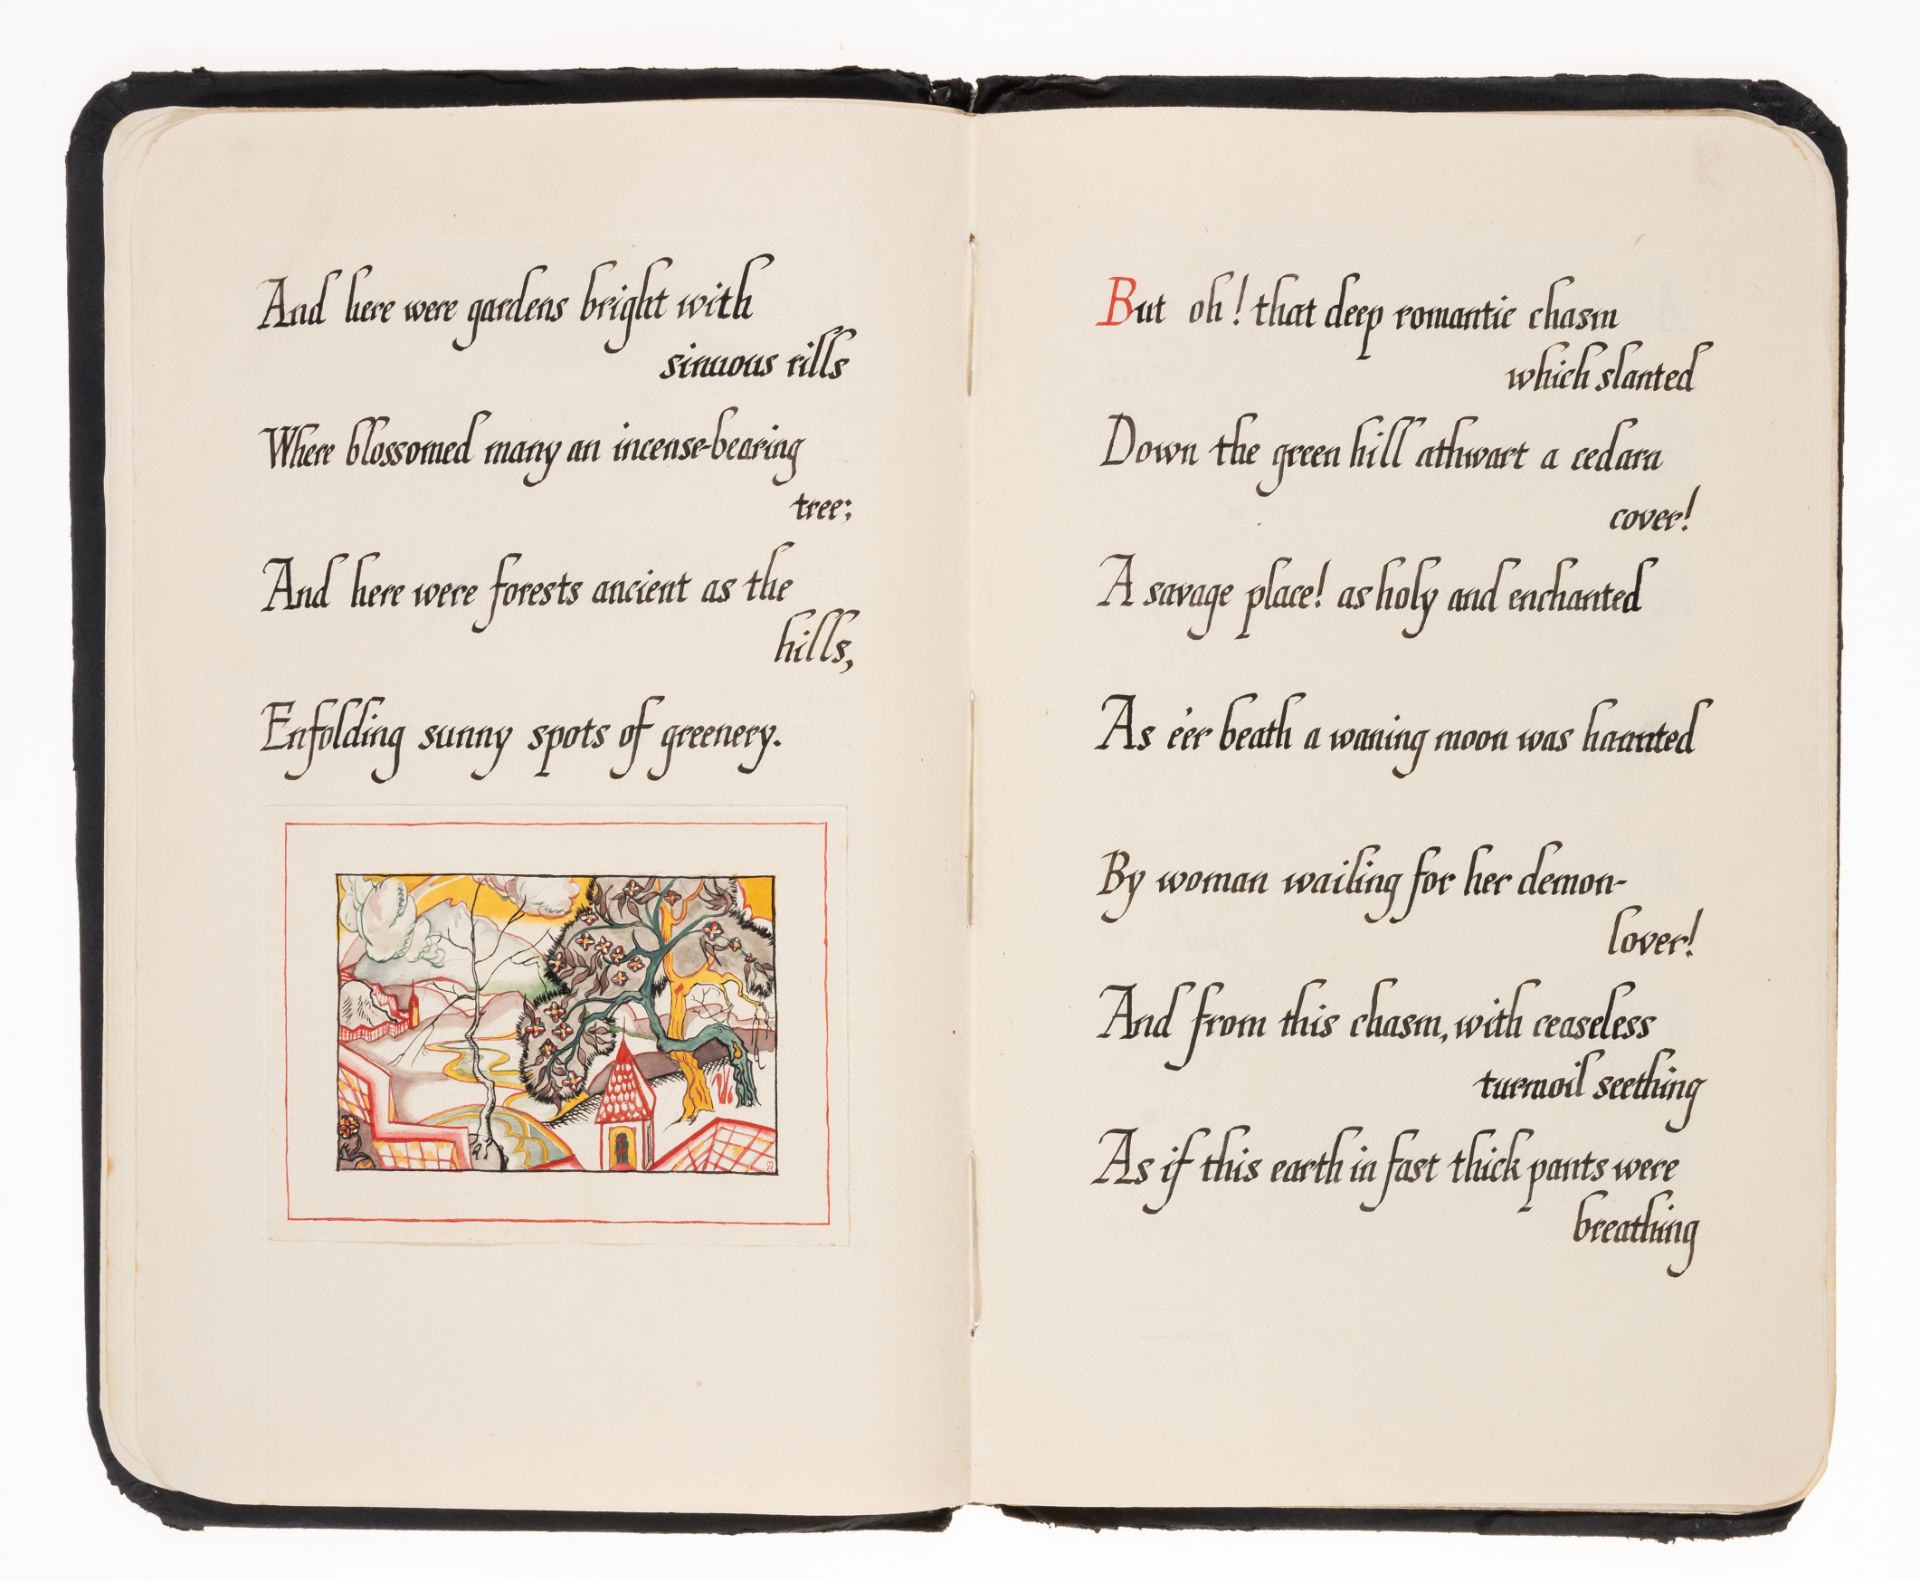 And here were gardens bright with
sinuous rills
Where blossomed many an incense-bearing
tree;
And here were forests ancient as the
hills,
Enfolding sunny spots of greenery.
But oh! that deep romantic chasm
which slanted
Down the green hill athwart a cedarn
cover!
A savage place! as holy and enchanted
As e'er beath a waning moon was haunted
By woman wailing for her demon-
lover!
And from this chasm, with ceaseless
turmoil seething
As if this earth in fast thick pants were
breathing